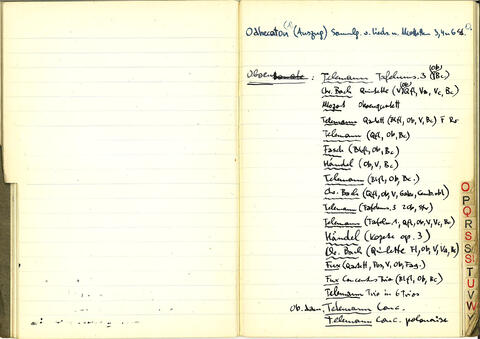 (Auszug) Samml. v. Lieder u. Motetten 3, 4 u 6 St.
Oboensonate: Telemann Tafelmus. 3 (Ob, Bc)
Chr. Bach Quintette (Qfl, Ob, V, Va, Vc, Bc)
Mozart Oboenquartett
Telemann Quartett (Blfl, Ob, V, Bc) F
Telemann (Qfl, Ob, Bc)
Fasch (Blfl, Ob, Bc)
Händel (Ob, V, Bc)
Telemann (Blfl, Ob, Bc.)
Chr. Bach (Qfl, Ob, V, Gambe, Cembal)
Telemann (Tafelmus. 3 2 Ob,
Telemann (Tafelm. 1, Qfl, Ob, V, Vc, Bc)
Händel (Konzerte op. 3)
Chr. Bach (Quintette Fl, Ob, V, Va, Bc)
Fux (Quartett, Pos, V, Ob, Fag.)
Fux Concentus Trio (Blfl, Ob, Bc)
Telemann Trio in 6 Trios
Telemann Conc.
Telemann Conc. polonaise
O
P
Q
R
S
S
T
U
V
W